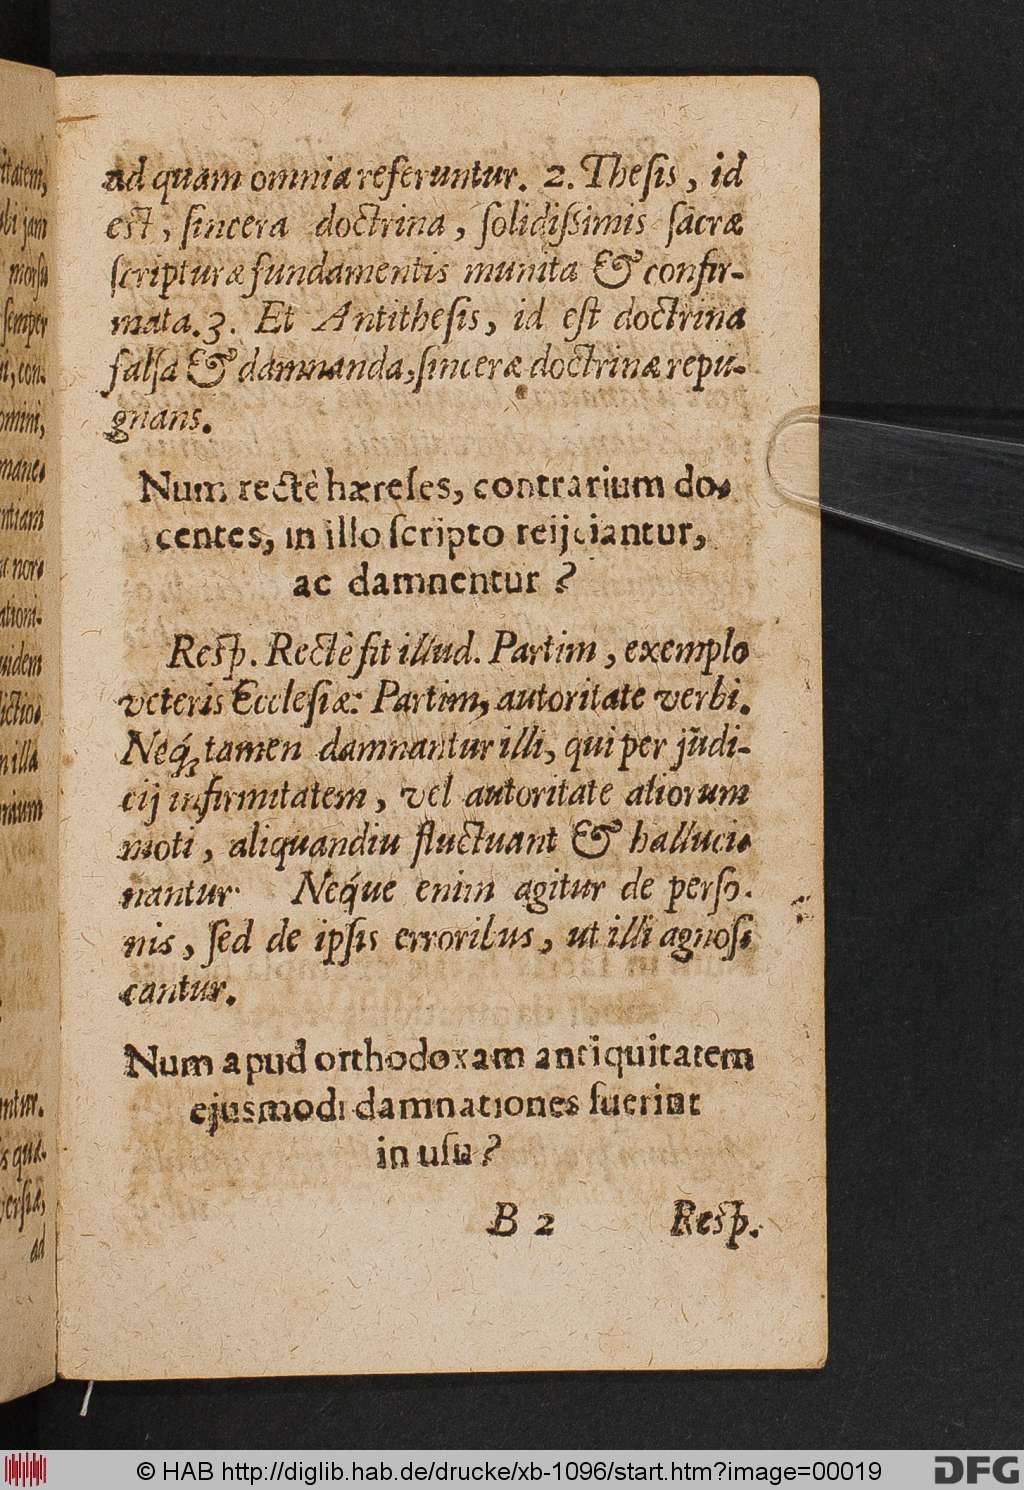 ad quam omnia referuntur. 2. Thesis, id
est, sincera doctrina, solidissimis sacræ
scripturæ fundamentis munita & confir-
mata. 3. Et Antithesis, id est doctrina
falsa & damnanda, sinceræ doctrinæ repu-
gnans.
Num rectè hæreses, contrarium do-
centes, in illo scripto reijciantur,
ac damnentur?
Resp. Rectè fit illud. Partim, exemplo
veteris Ecclesiæ: Partim, autoritate verbi.
Neq; tamen damnantur illi, qui per judi-
cij infirmitatem, vel autoritate aliorum
moti, aliquandiu fluctuant & halluci-
nantur. Neque enim agitur de perso-
nis, sed de ipsis erroribus, ut illi agnos-
cantur.
Num apud orthodoxam antiquitatem
ejusmodi damnationes fuerint
in usu?
B 2 Resp.
itatem,
bi jam
morsu
semper
n, con-
omini,
mane-
ntiam
nor-
ationi-
uidem
dictio-
n illa
nium
ntur.
s quæ-
versiæ,
ad
© HAB http://diglib.hab.de/drucke/xb-1096/start.htm?image=00019
DFG